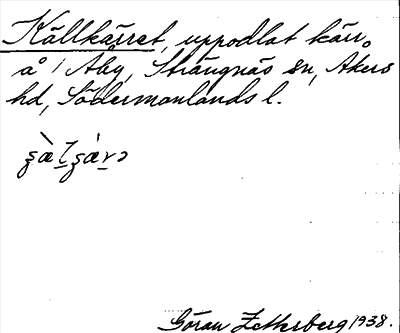 Källkärret, uppodlat kärr.
å / Åby, Strängnäs sn, Åkers
hd, Södermanlands l.
Göran Zetterberg 1938.